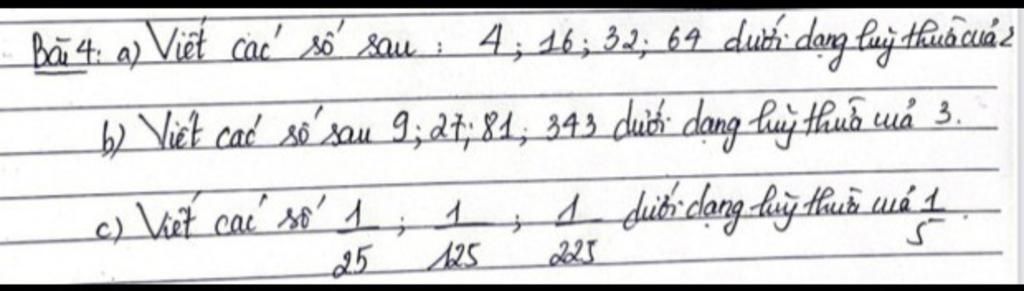 Bài 4: a) Viết các số sau : 4 ; 16 ; 32 ; 64 dưới dạng luỹ thừa của 2
b) Viết các số sau 9 ; 27 ; 81 ; 343 dưới dạng luỹ thừa của 3.
c) Viết các số 1/25 ; 1/125 ; 1/225 dưới dạng luỹ thừa của 1/5.